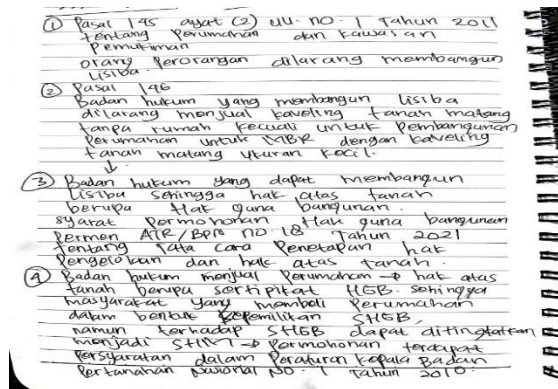 ① Pasal 145 ayat (2) UU. NO. 1 Tahun 2011
tentang Perumahan dan Kawasan
Pemukiman
orang Perorangan dilarang membangun
Lisiba.
② Pasal 146
Badan hukum yang membangun Lisiba
dilarang menjual kaveling tanah matang
tanpa rumah kecuali untuk Pembangunan
Perumahan untuk MBR dengan kaveling
tanah matang ukuran kecil.
↓
③ Badan hukum yang dapat membangun
Lisiba sehingga hak atas tanah
berupa Hak guna bangunan.
syarat Permohonan Hak guna bangunan
Permen ATR/BPN NO. 18 Tahun 2021
tentang Tata cara Penetapan hak
Pengelolaan dan hak atas tanah.
④ Badan hukum menjual Perumahan → hak atas
tanah berupa sertipikat HGB. sehingga
masyarakat yang membeli Perumahan
dalam bentuk Kepemilikan SHGB,
namun terhadap SHGB dapat ditingkatkan
menjadi SHM → Permohonan terdapat
Persyaratan dalam Peraturan Kepala Badan
Pertanahan Nasional NO. 1 Tahun 2010.